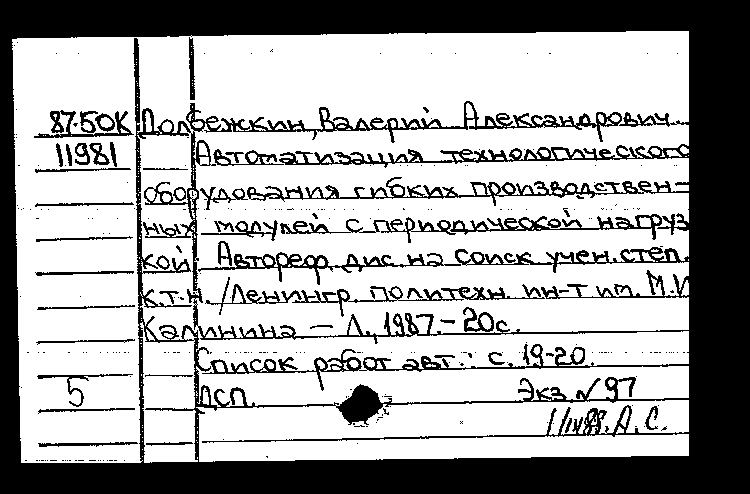 87-50К Долбежкин, Валерий Александрович
11981 Автоматизация технологического
оборудования гибких производствен-
ных модулей с периодической нагруз
кой: Автореф. дис. на соиск учен. степ.
к.т.н. /Ленингр. политехн. ин-т им. М.И
Калинина – Л., 1987. – 20с.
Список работ авт.: с. 19-20.
5 ДСП. Экз. № 97
А.С.